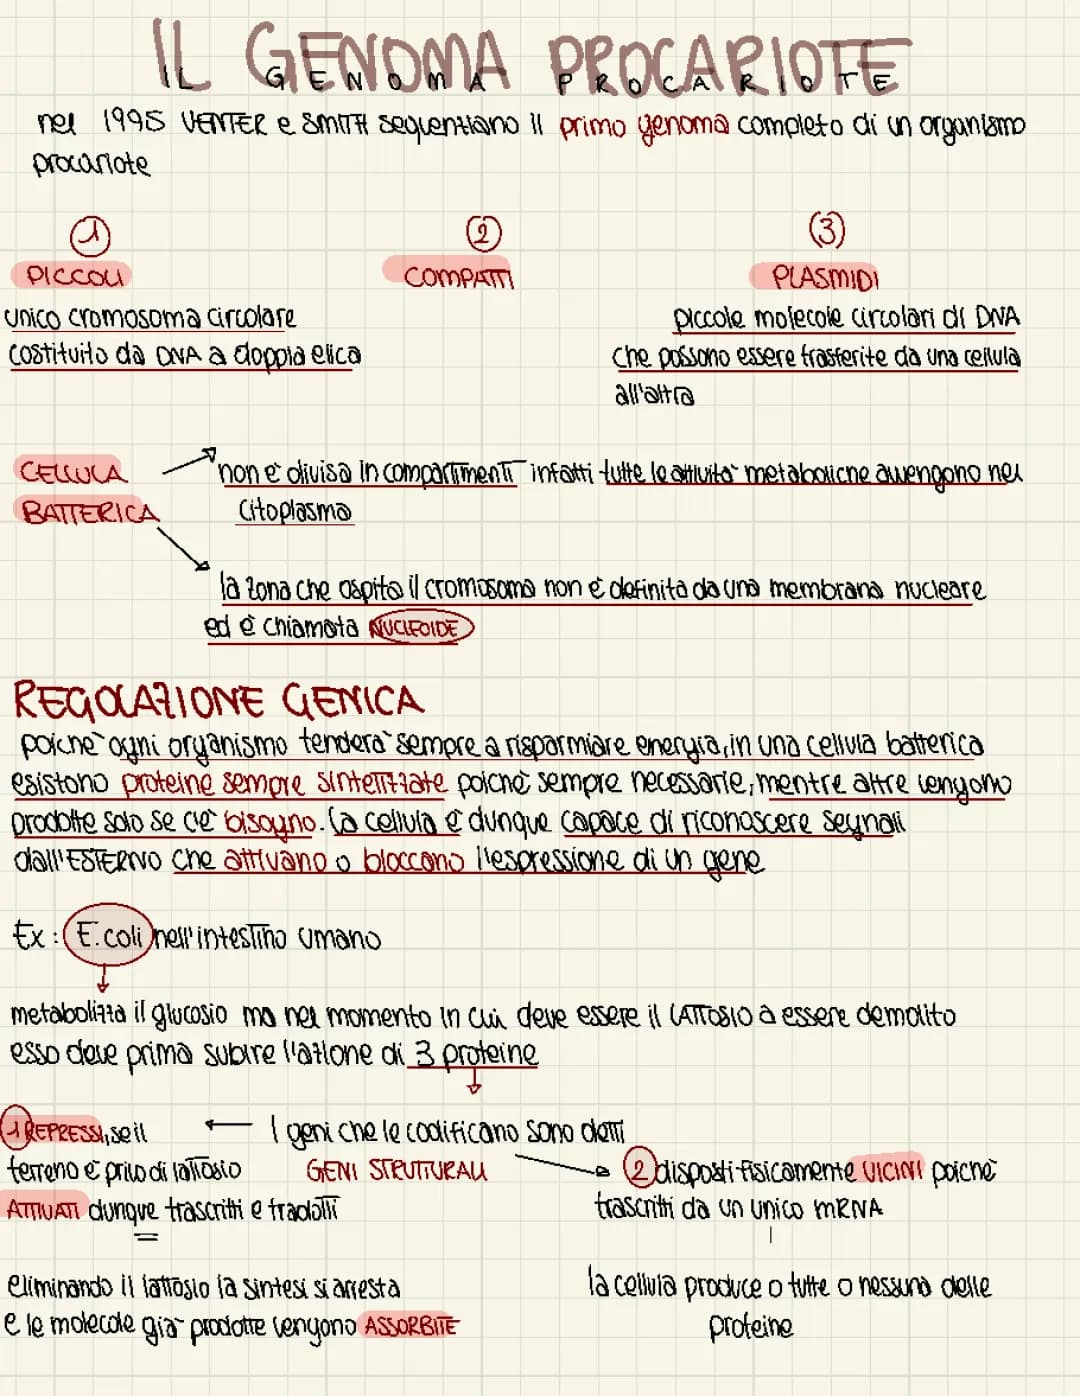 IL GENOMA PROCARIOTE
IL GENOMA PROCARIOTE
nel 1995 VENTER e SMITH sequenziano il primo genoma completo di un organismo
procariote
1
PICCOLI
unico cromosoma circolare
costituito da DNA a doppia elica
2
COMPATTI
3
PLASMIDI
piccole molecole circolari di DNA
che possono essere trasferite da una cellula
all'altra
CELLULA
BATTERICA
non è divisa in compartimenti infatti tutte le attività metaboliche avvengono nel
citoplasma
la zona che ospita il cromosoma non è definita da una membrana nucleare
ed è chiamata NUCLEOIDE
REGOLAZIONE GENICA
poichè ogni organismo tenderà sempre a risparmiare energia, in una cellula batterica
esistono proteine sempre sintetizzate poichè sempre necessarie, mentre altre vengono
prodotte solo se c'è bisogno. La cellula è dunque capace di riconoscere segnali
dall'ESTERNO che attivano o bloccano l'espressione di un gene
Ex: E.coli nell'intestino umano
metabolizza il glucosio ma nel momento in cui deve essere il LATTOSIO a essere demolito
esso deve prima subire l'azione di 3 proteine
I geni che le codificano sono detti
GENI STRUTTURALI
1 REPRESSI, se il
terreno è privo di lattosio
ATTIVATI dunque trascritti e tradotti
eliminando il lattosio la sintesi si arresta
e le molecole già prodotte vengono ASSORBITE
2 disposti fisicamente VICINI poichè
trascritti da un unico mRNA
la cellula produce o tutte o nessuna delle
proteine